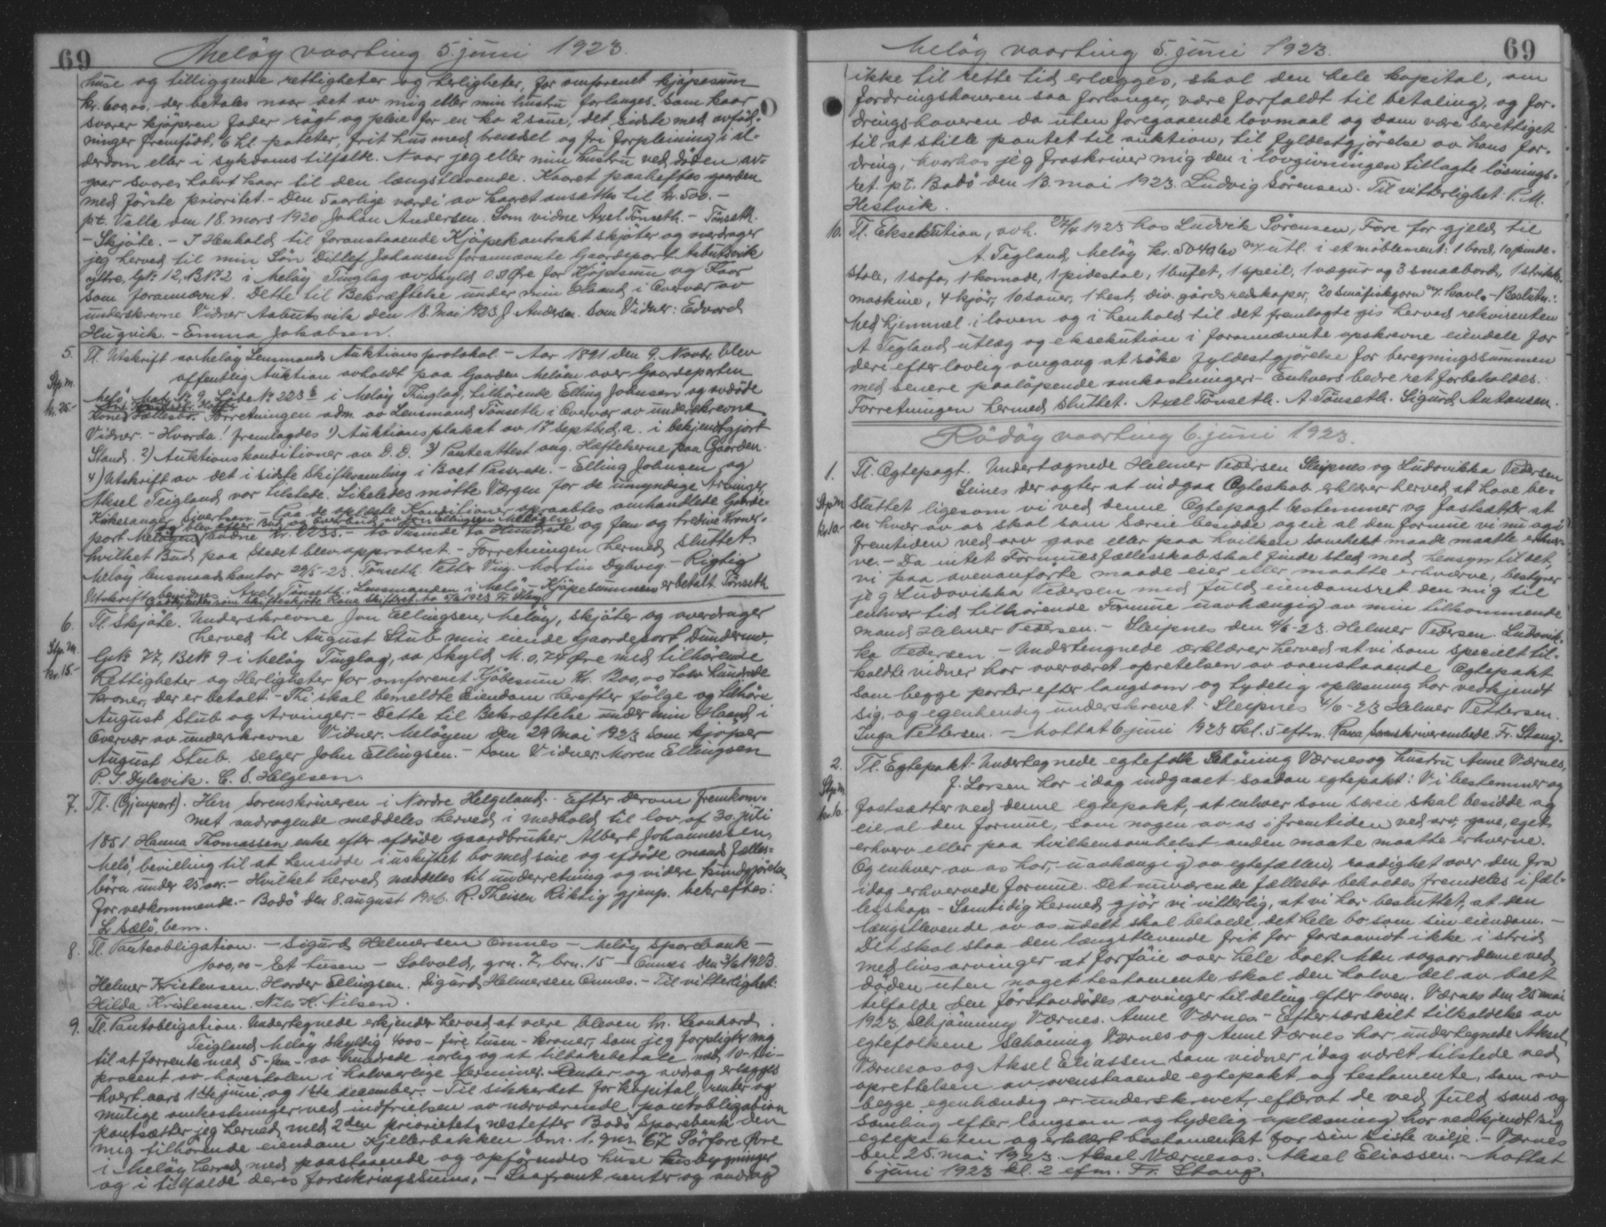 69
Meløy vaarting 5. juni 1923.
huse og tilliggende rettigheter og herligheter, for omforenet kjøpesum
kr. 600,00. der betales naar det av mig eller min hustru forlanges. Som kaar
svarer kjøperen foder røgt og pleie for en ko 2 sauer, det sidste med avføl-
ninger fremfødt, 6 hl poteter, frit hus med brendsel og fri forpleining i al-
derdom eller i sykdomstilfælde. Naar jeg eller min hustru ved døden av-
gaar svares halvt kaar til den længstlevende. Kaaret paaheftes gaarden
med første prioritet. - Den 5 aarlige værdi av kaaret ansættes til kr. 500.-
pt. Valle den 18. mars 1920. Johan Andersen. Som vidne Axel Tønseth. - Tønseth.
- Skjøte. - I Henhold til foranstaaende Kjøpekontrakt skjøter og overdrager
jeg herved til min Søn Ditlef Johansen forannævnte Gaardepart
ytre, Gnr. 12, B.Nr. 2 i Meløy Tinglag av Skyld 0.9 Øre for Kjøpsum og Kaar
som forannævnt. Dette til Bekræftelse under min Haand i Overvær av
underskrevne Vidner Aabutsvik den 18 Mai 1923 J. Andersen. Som Vidner: Edvard
Hugvik. - Emma Jakobsen.
5. Tl. Utskrift av Meløy Lensmands Auktionsprotokol - Aar 1891 den 9. Novbr. blev
offentlig Auktion avholdt paa Gaarden Meløen over Gaardeparten
Stp. m.
Meløy i Meløy Thinglag, tilhørende Elling Johnsen og avdøde
kr. 25.-
Kones Fællesbo. Forretningen adm. av Lensmand Tønseth i Overvær av underskrevne
Vidner. - Hvorda! fremlagdes 1) Auktionsplakat av 17 septb. d.a. i bekjendtgjort
Stand. 2) Auktionskonditioner av D. D. 3) Panteattest ang. Hæftelserne paa Gaarden
4) Utskrift av det i sidste Skiftesamling i Boet Passerede. - Elling Johnsen og
Aksel Teigland var tilstede. Likeledes møtte Værgen for de umyndige Arvinger,
Kirkesanger Sivertsen - Paa de oplæste Konditioner opraabtes omhandlede Gaarde-
port og fem og tredive Kroner.
hvilket Bud paa Stedet blev approberet - Forretningen hermed sluttet
Meløy lensmandskontor 29/5-23. Tønseth Petter Ving. Martin Dybvig. - Rigtig
Utskrift bevidner Axel Tønseth. Lensmanden i Meløy - Kjøpesummen er betalt. Tønseth
6. Tl. skjøte. Underskrevne Jon Ellingsen, Meløy, skjøter og overdrager
herved til August Stub min eiende Gaardepart
Stp. m.
Gnr. 77, Bnr 9 i Meløy Tinglag, av Skyld M. 0,74 Øre med tilhørende
kr. 15.-
Rettigheter og Herligheter for omforenet Kjøbesum kr. 1200,00 tolv hundrede
kroner, der er betalt. - Thi skal bemeldte Eiendom herefter følge og tilhøre
August Stub og Arvinger. - Dette til Bekræftelse under min Haand i
Overvær av underskrevne Vidner. Meløyen den 29 Mai 1923 Som kjøper
August Stub. Selger John Ellingsen. - Som Vidner. Maren Ellingsen
P. I. Dylevik. C. S. Helgesen
7. Tl. (Gjenpart). Hrr. Sorenskriveren i Nordre Helgeland. - Efter derom fremkom-
met andragende meddeles herved i medhold til lov af 30. juli
1851 Hanna Thomassen enke efter afdøde gaardbruker Albert Johannessen,
Meløy, bevilling til at hensidde i uskiftet bo med sine og afdøde mands fælles-
børn under 25 aar. - Hvilket herved meddeles til underretning og videre kundgjørelse
for vedkommende. - Bodø den 8. august R. Theisen Riktig gjenp. bekreftes:
L. Sælø, bem.
8. Tl. Panteobligation. - Sigurd Helmersen Onnes - Meløy Sparebank -
1000,00 - Et tusen - Solvold, grn. 7, brn. 15 - Onnes den 3/6 1923
Helmer Kristensen. Hordor Ellingsen. Sigurd Helmersen Onnes. - Til vitterlighet:
Hilda Kristensen. Nils K. Nilsen.
9. Tl. Pantobligation. Undertegnede erkjender herved at være bleven hr. Leonhard
Teigland Meløy skyldig 4000 - fire tusen - kroner, som jeg forpligter mig
til at forrente med 5 - fem - av hundrede aarlig og at tilbakebetale med 10 - ti -
procent av hovedstolen i halvaarlige terminer. Renter og avdrag erlægges
hvert aars 14de juni og 14de december. - Til sikkerhet for kapital, renter og
mulige omkostninger ved indfrielsen av nærværende pantobligation
pantsætter jeg herved med 2den prioritet næstefter Bodø Sparebank den
mig tilhørende eiendom Kjellerbakken brn. 1, gnr. 67 Sørfore Øre
i Meløy herred med paastaaende og opførendes huse
og i tilfælde deres forsikringssum. - Saafremt renter og avdrag
69
Meløy vaarting 5. juni 1923.
ikke til rette tid erlægges, skal den hele kapital, om
fordringshaveren saa forlanger, være forfaldt til betaling, og for-
dringshaveren da uten foregaaende lovmaal og dom være berettiget
til at stille pantet til auktion, til fyldestgjørelse av hans for-
dring, hvorhos jeg fraskriver mig den i lovgivningen tillagte løsnings-
ret. pt. Bodø den 13. mai 1923. Ludvig Sørensen. Til vitterlighet: P. M.
Hestvik.
10. Tl. Eksekution, avh. 1923 hos Ludvik Sørensen, Fore for gjeld til
A. Tigland Meløy utl. i et møblement: 1 bord, 10 pinde-
stole, 1 sofa, 1 komode, 1 pidestal, 1 bufet, 1 speil, 1 vægur og 3 smaabord,
maskine, 4 kjør, 10 sauer, 1 hest, div. gårdsredskaper, 20 småfiskgarn - Beslutn.:
Med hjemmel i loven og i henhold til det fremlagte gis herved rekvirenten
A. Tigland utlæg og eksekution i forannævnte opskrevne eiendele for
deri efter lovlig omgang at søke fyldestgjørelse for beregningssummen
med senere paaløpende omkostninger. - Enhvers bedre ret forbeholdes.
Forretningen hermed sluttet. Axel Tønseth. A. Tønseth. Sigurd Antonsen.
Rødøy vaarting 6. juni 1923.
1. Tl. Egtepagt. Undertegnede Helmer Pedersen Sleipnes og Ludovikka Pedersen
Seines der agter at indgaa Egteskab erklærer herved at have be-
Stp. m.
sluttet ligesom vi ved denne Egtepagt bestemmer og fastsætter at
kr. 10.-
en hver av os skal som Særeie besidde og eie al den Formue vi nu og i
fremtiden ved arv gave eller paa hvilken somhelst maade maatte erhver-
ve. - Da intet Formuesfællesskab skal finde sted med hensyn til det,
vi paa ovenanførte maade eier eller maatte erhværve, bestyrer
jeg Ludovikka Pedersen med fuld eiendomsret den mig til
enhver tid tilhørende Formue uavhængig av min tilkommende
mand Helmer Pedersen. - Sleipnes den 4/6-23. Helmer Pedersen. Ludovik-
ka Pedersen - Undertegnede erklærer herved at vi som specielt til-
kaldte vidner har overværet oprettelsen av ovenstaaende Egtepakt
som begge parter efter langsom og tydelig oplæsning har vedkjendt
sig og egenhendig underskrevet. Sleipnes 4/6-23 Helmer Pettersen.
Inga Pettersen. - Mottat 6 juni 1923 kl. 5 eftm. Rana Sorenskriverembede. Fr. Stang.
2. Tl. Egtepakt. Undertegnede egtefolk Schøning Værnes og hustru Anne Værnes,
f. Larsen har idag indgaaet saadan egtepakt: Vi bestemmer og
Stp. m.
fastsætter ved denne egtepakt, at enhver som særeie skal besidde og
kr. 6.
eie al den formue, som nogen av os i fremtiden ved arv, gave, eget
erhverv eller paa hvilkensomhelst anden maate maatte erhverve.
Og enhver av os har, uavhængig av egtefællen, raadighet over den fra
idag erhvervede formue. Det nuværende fællesbo beholdes fremdeles i fæl-
lesskap. - Samtidig hermed gjør vi vitterlig, at vi har besluttet, at den
længstlevende av os udelt skal beholde det hele bo som sin eiendom. -
Det skal staa den længstlevende frit for forsaavidt ikke i strid
med livsarvinger at forføie over hele boet. Men avgaar denne ved
døden uten noget testamente skal den halve del av boet
tilfalde den førstavdødes arvinger til deling efter loven. Værnes den 25 mai
1923. Schjønning Værnes. Anne Værnes. - Efter særskilt tilkaldelse av
egtefolkene Schønning Værnes og Anne Værnes har undertegnede Aksel
Værnesos og Aksel Eliassen som vidner idag været tilstede ved
oprettelsen av ovenstaaende egtepakt og testamente, som av
begge egenhændig er underskrevet, efterat de ved fuld sans og
samling efter langsom og tydelig oplæsning har vedkjendt sig
egtepakten og erklært testamentet for sin siste vilje. - Værnes
den 25. mai 1923. Aksel Værnesos. Aksel Eliassen. - Mottat
6 juni 1923 kl. 2 efm. Fr. Stang.